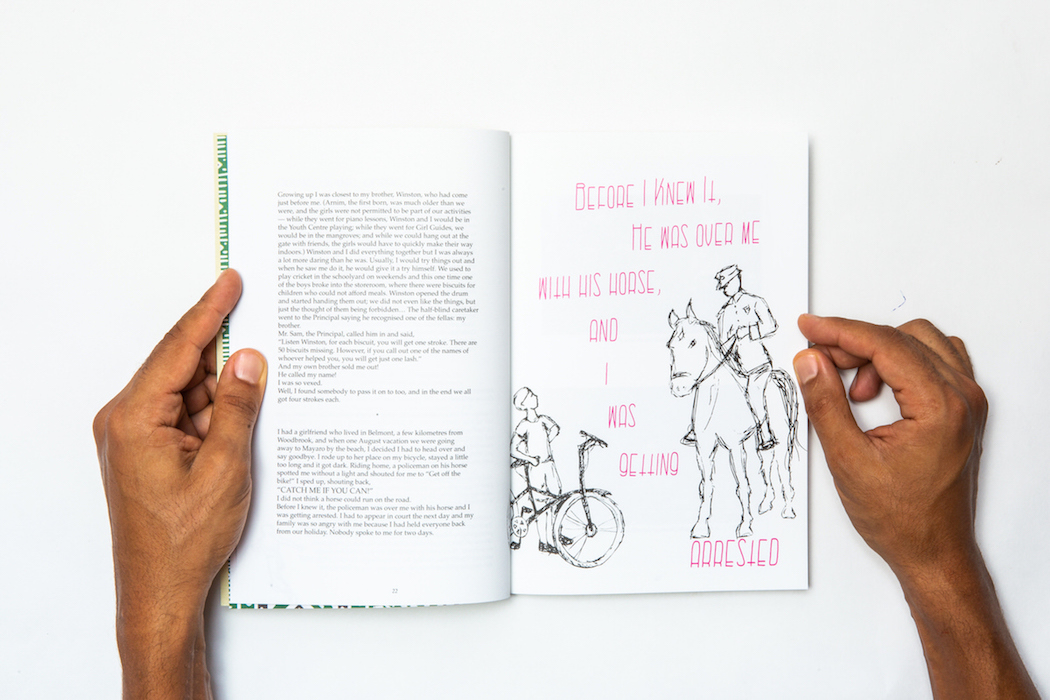 Growing up I was closest to my brother, Winston, who had come
just before me. (Arnim, the first born, was much older than we
were, and the girls were not permitted to be part of our activities
— while they went for piano lessons, Winston and I would be in
the Youth Centre playing; while they went for Girl Guides, we
would be in the mangroves; and while we could hang out at the
gate with friends, the girls would have to quickly make their way
indoors.) Winston and I did everything together but I was always
a lot more daring than he was. Usually, I would try things out and
when he saw me do it, he would give it a try himself. We used to
play cricket in the schoolyard on weekends and this one time one
of the boys broke into the storeroom, where there were biscuits for
children who could not afford meals. Winston opened the drum
and started handing them out; we did not even like the things, but
just the thought of them being forbidden… The half-blind caretaker
went to the Principal saying he recognised one of the fellas: my
brother.
Mr. Sam, the Principal, called him in and said,
"Listen Winston, for each biscuit, you will get one stroke. There are
50 biscuits missing. However, if you call out one of the names of
whoever helped you, you will get just one lash."
And my own brother sold me out!
He called my name!
I was so vexed.
Well, I found somebody to pass it on to too, and in the end we all
got four strokes each.
*
I had a girlfriend who lived in Belmont, a few kilometres from
Woodbrook, and when one August vacation we were going
away to Mayaro by the beach, I decided I had to head over and
say goodbye. I rode up to her place on my bicycle, stayed a little
too long and it got dark. Riding home, a policeman on his horse
spotted me without a light and shouted for me to "Get off the
bike!" I sped up, shouting back,
"CATCH ME IF YOU CAN!"
I did not think a horse could run on the road.
Before I knew it, the policeman was over me with his horse and I
was getting arrested. I had to appear in court the next day and my
family was so angry with me because I had held everyone back
from our holiday. Nobody spoke to me for two days.
22
Before I Knew It,
He was over me
with his horse,
and
I
was
getting
arrested